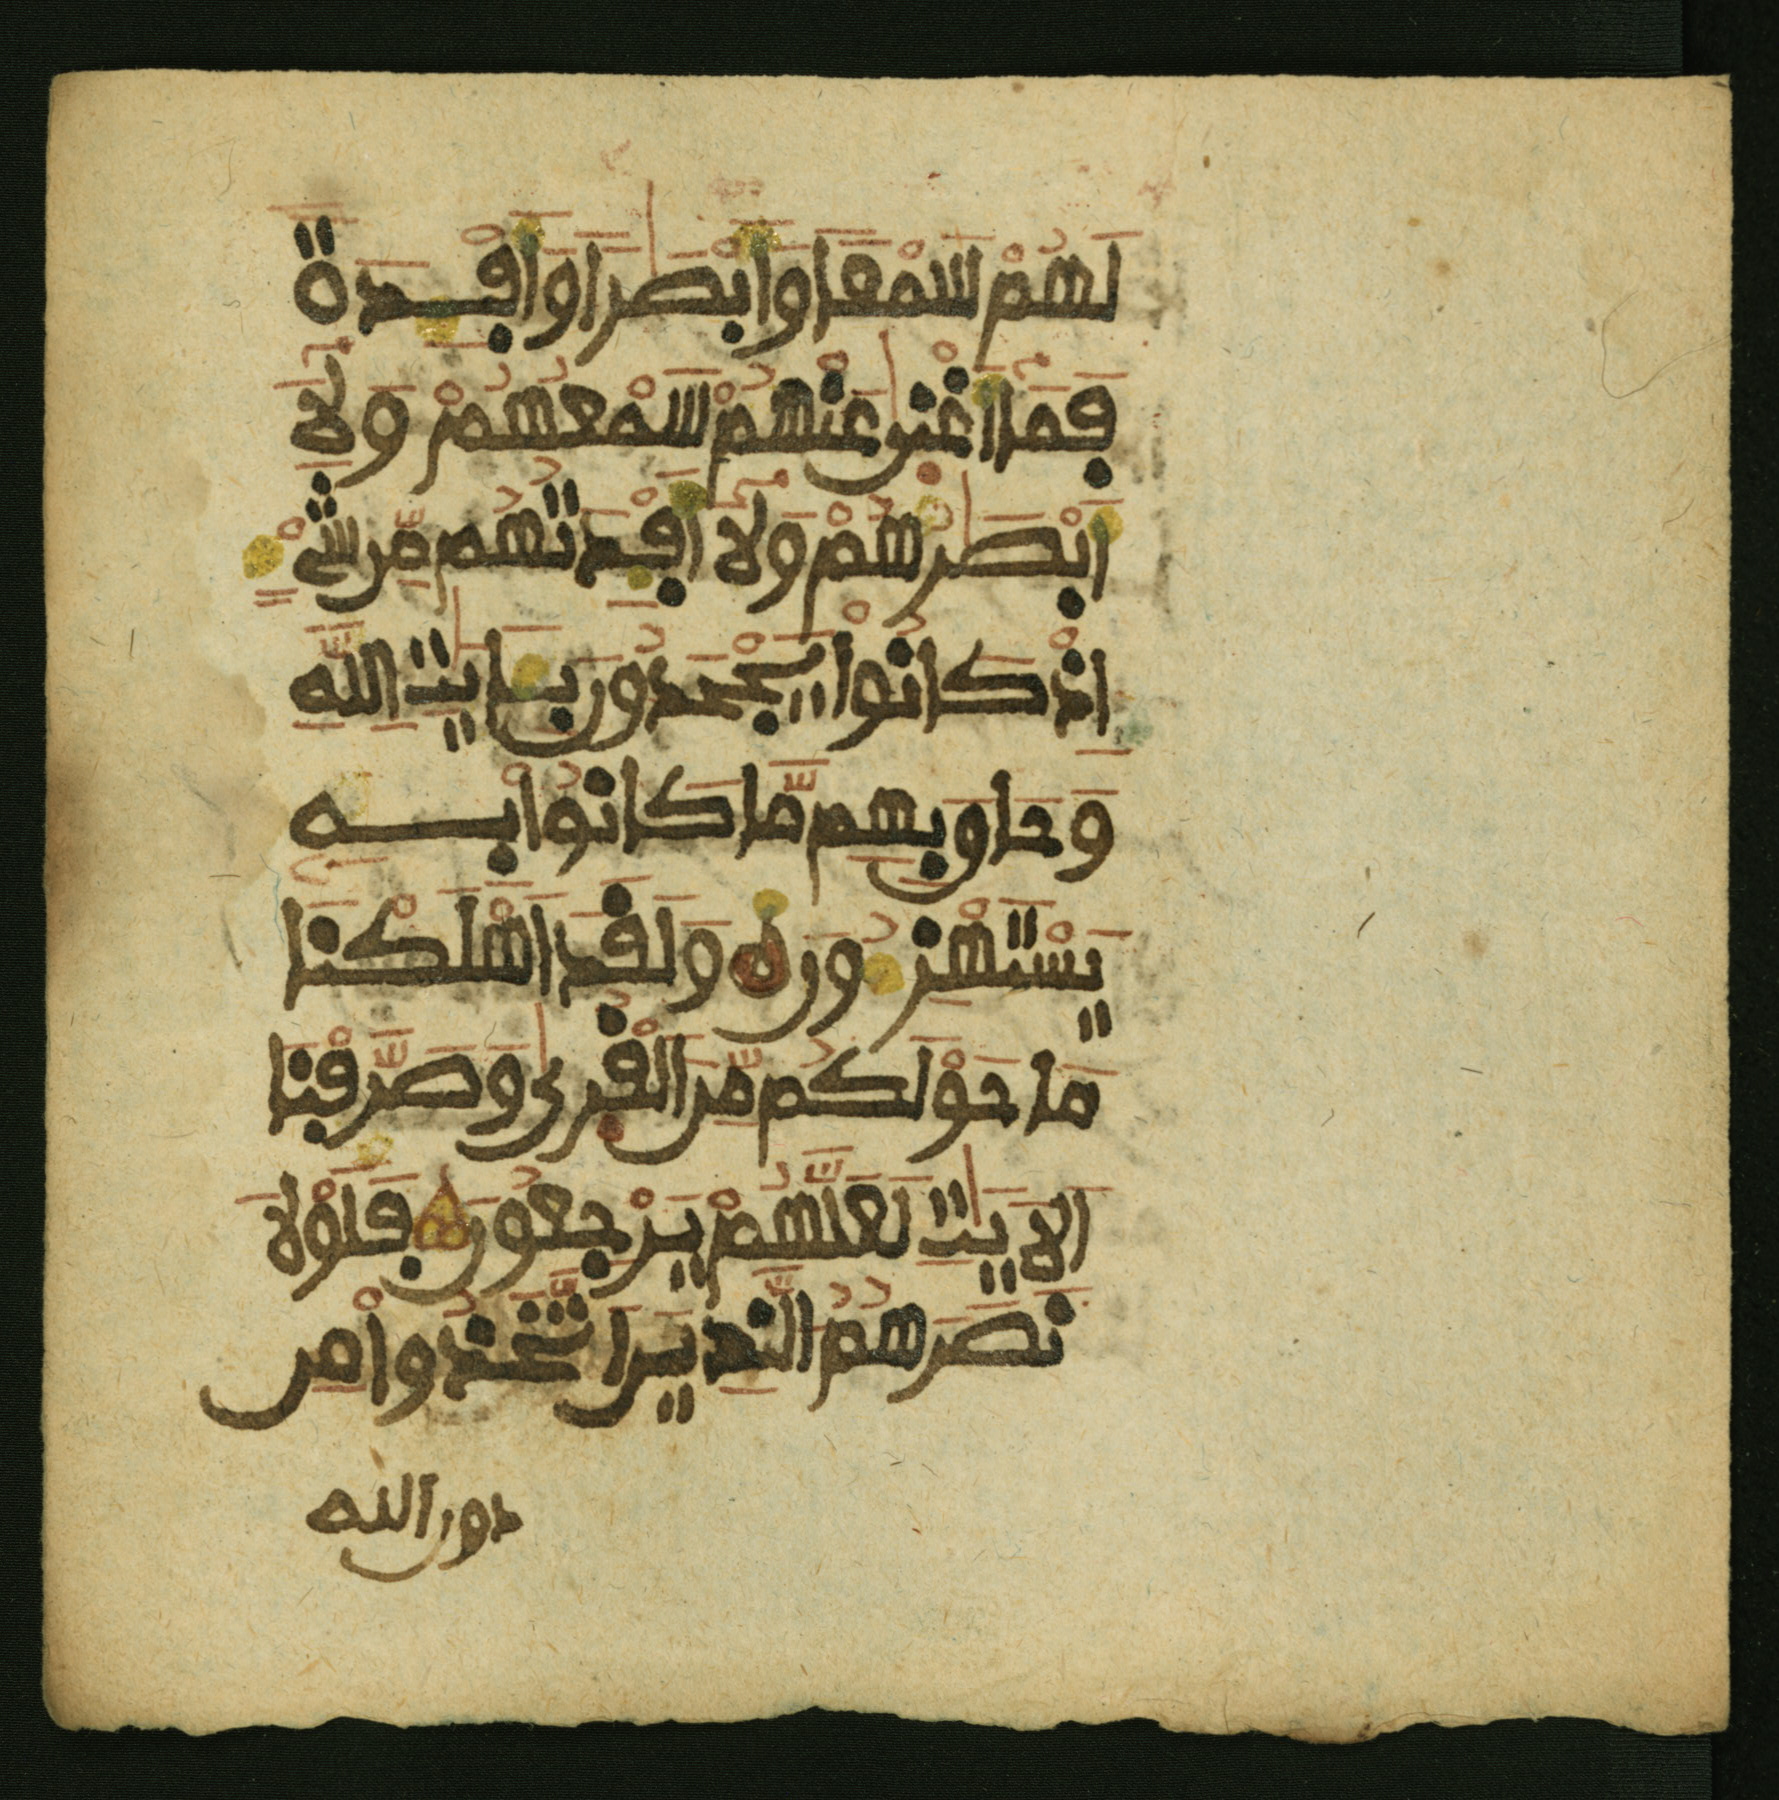 لَهُمْ سَمْعًا وَأَبْصَٰرًا وَأَفْـِٔدَةً
فَمَآ أَغْنَىٰ عَنْهُمْ سَمْعُهُمْ وَلَآ
أَبْصَٰرُهُمْ وَلَآ أَفْـِٔدَتُهُم مِّن شَيْءٍ
إِذْ كَانُواْ يَجْحَدُونَ بِـَٔايَٰتِ اللَّهِ
وَحَاقَ بِهِم مَّا كَانُواْ بِهِۦ
يَسْتَهْزِءُونَ ه وَلَقَدْ أَهْلَكْنَا
مَا حَوْلَكُم مِّنَ الْقُرَىٰ وَصَرَّفْنَا
الَايَٰتِ لَعَلَّهُمْ يَرْجِعُونَ فَلَوْلَا
نَصَرَهُمُ الَّذِينَ اتَّخَذُواْ مِن
دون الله